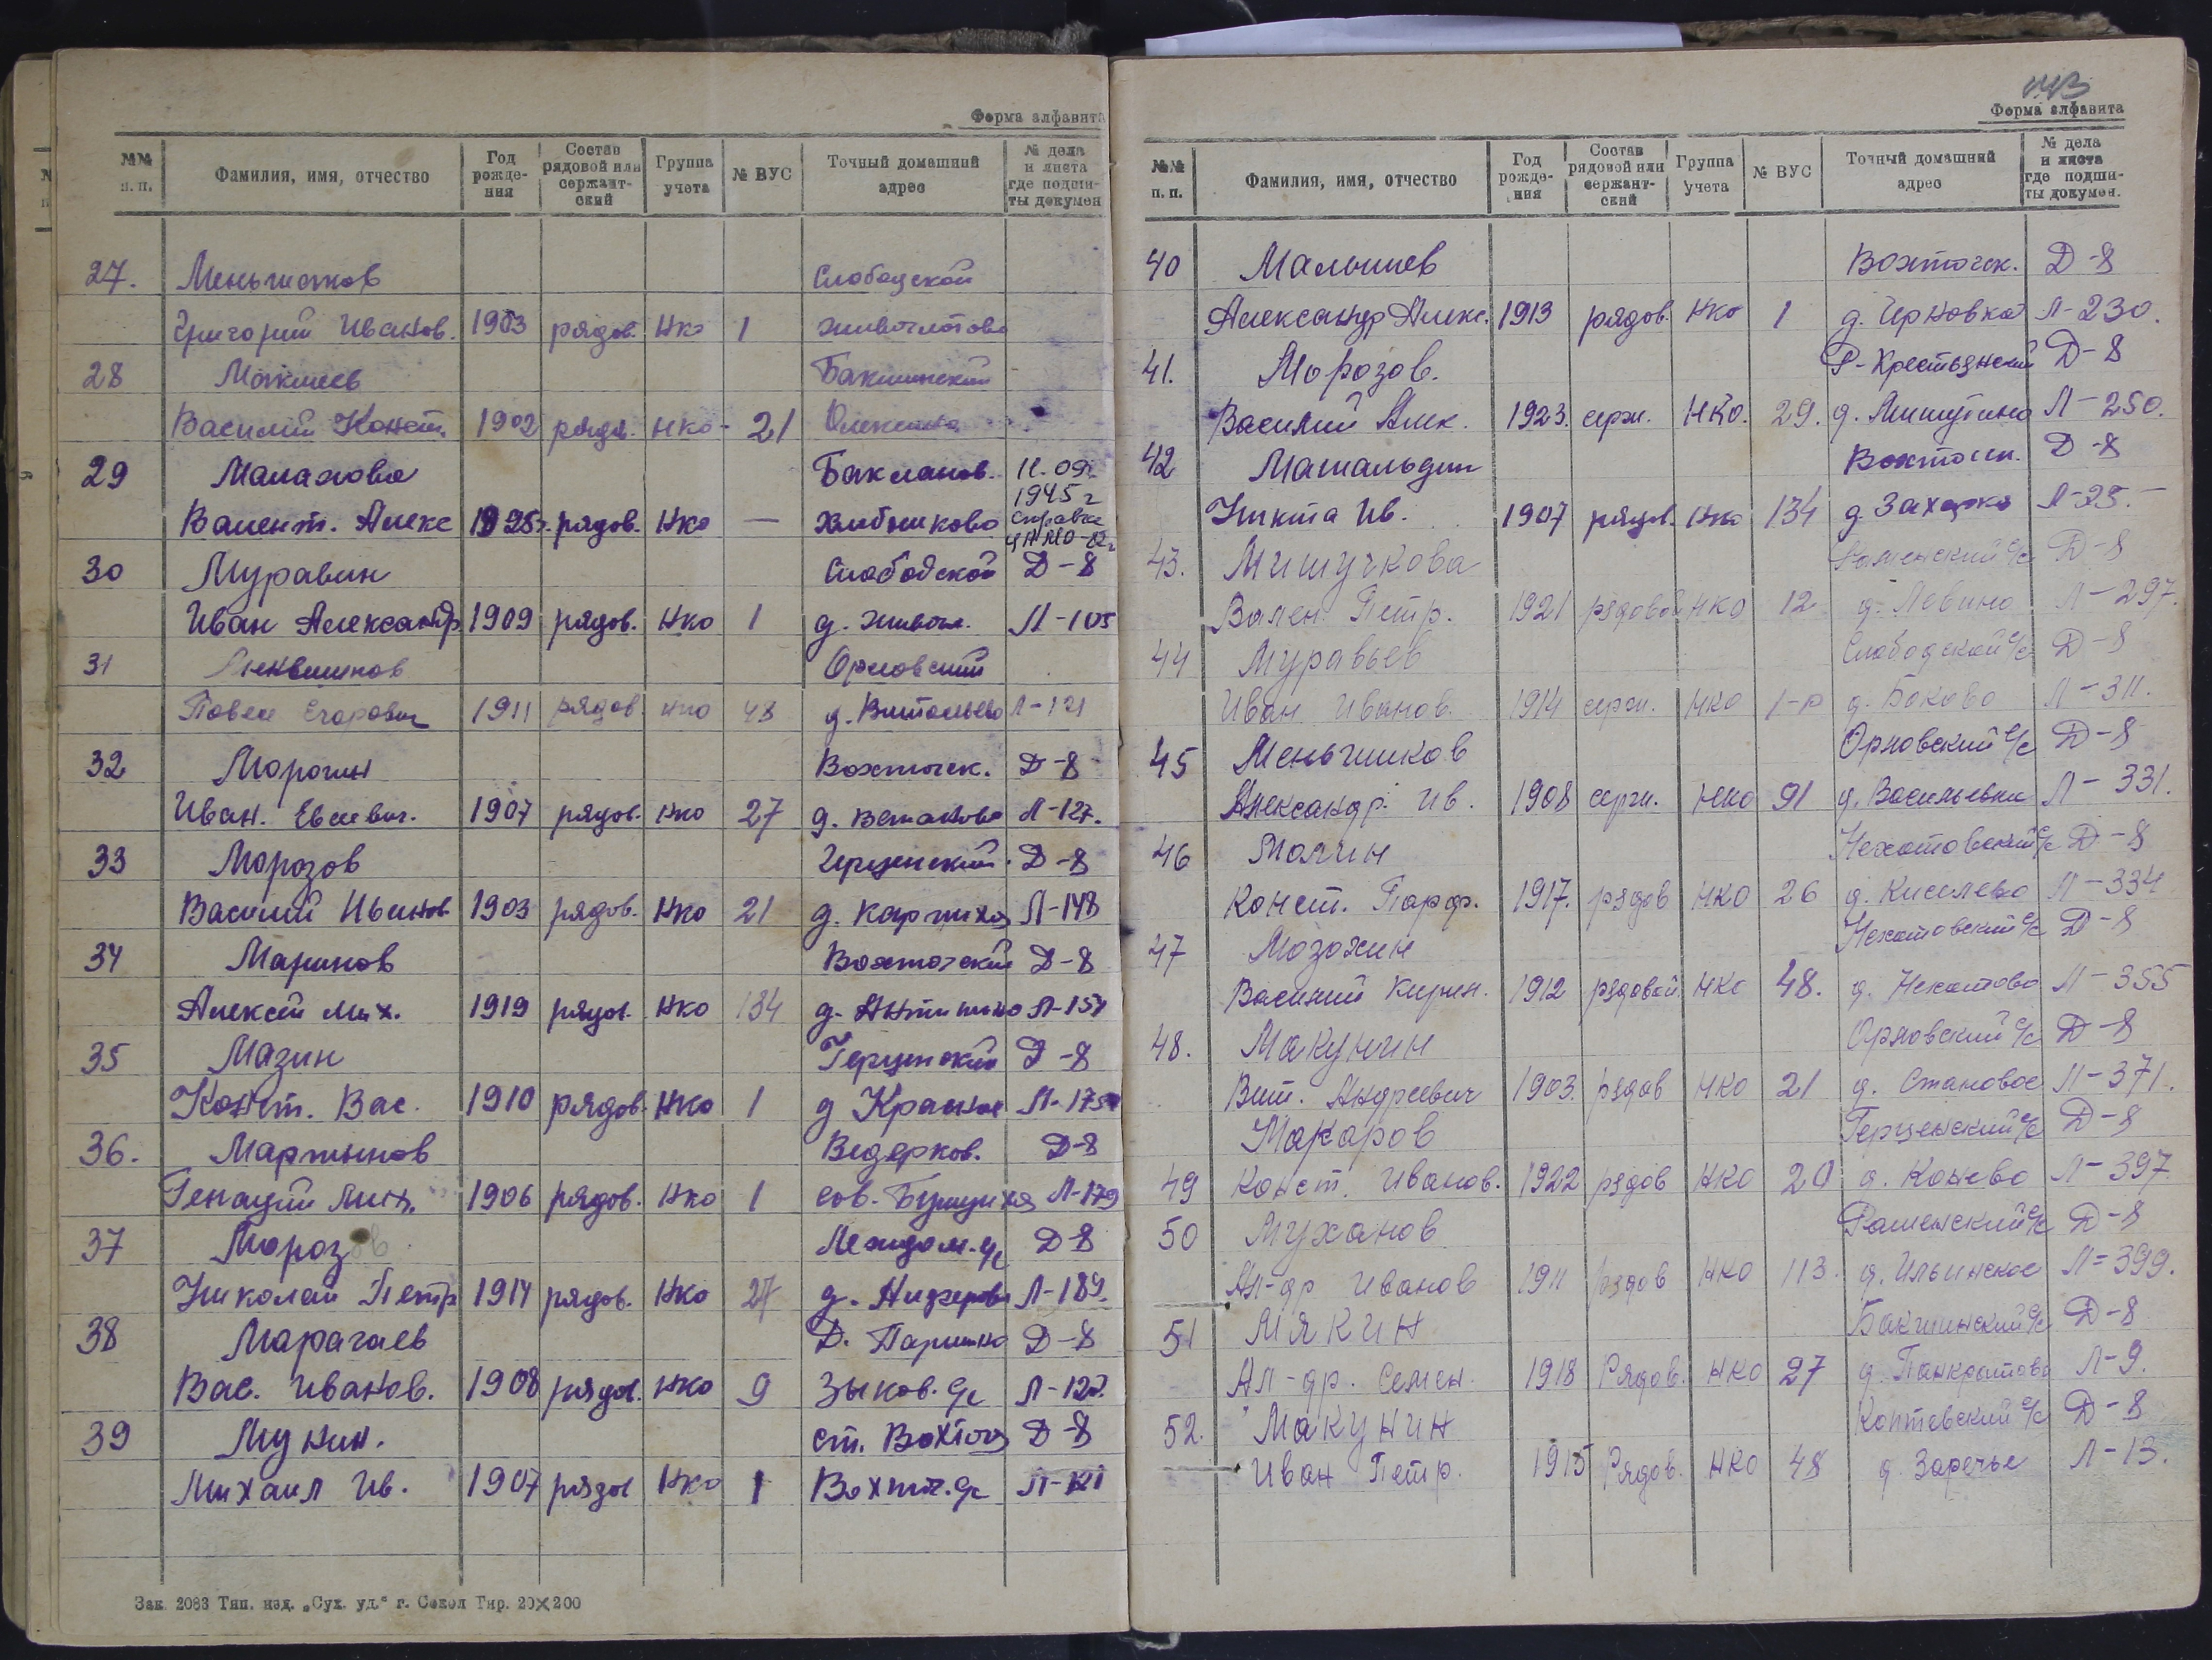 Форма алфавита
№№ п. п. Фамилия, имя, отчество Год рождения Состав рядовой или сержантский Группа учета № ВУС Точный домашний адрес № дела и листа где подшиты докумен
27. Меньшиков Слободской
Григорий Иванов. 1903 рядов. НКО 1 Животлотово
28 Макшеев Бакшинский
Василий Конст. 1902 рядов. НКО - 21
29 Малахова Бакланов. 11.09. 1945 г
Валент. Алекс 1925 г. рядов. НКО — Хлебниково справка
30 Муравин Слободской Д-8
Иван Александр 1909 рядов. НКО 1 д. Живот. Л-105
31 Орловский
Павел Егорович 1911 рядов НКО 48 д. Л-121
32 Морогин Вохтогск. Д-8
Иван. Евсевич. 1907 рядов. НКО 27 д. Л-127.
33 Морозов Герценский. Д-8
Василий Иванов 1903 рядов. НКО 21 д. Карпиха Л-148
34 Маринов Вохтогский Д-8
Алексей Мих. 1919 рядов. НКО 134 д. Антипино Л-154
35 Мазин Герценский Д-8
Конст. Вас. 1910 рядов. НКО 1 д Красное Л-175
36. Мартынов Ведерков. Д-8
Генадий Мих. 1906 рядов. НКО 1 сов. Л-179
37 Морозов. Леждом. с/с Д-8
Николай Петр 1914 рядов. НКО 27 д. Л-189.
38 Марагаев Д. Паршино Д-8
Вас. Иванов. 1908 рядов. НКО 9 Зыков. с/с Л-127.
39 Мунин. ст. Вохтога Д-8
Михаил Ив. 1907 рядов НКО 1 Вохтог. с/с
Зак 2083 Тип. изд. „Сух. уд.“ г. Сокол Тир. 20×200
Форма алфавита
№№ п. п. Фамилия, имя, отчество Год рождения Состав рядовой или сержантский Группа учета № ВУС Точный домашний адрес № дела и листа где подшиты докумен.
40 Малышев Вохтогск. Д-8
Александр Алекс. 1913 рядов. НКО 1 д. Черновка Л-230.
41. Морозов. Р-Крестьянский Д-8
Василий Алек. 1923. серж. НКО. 29. д. Мишутино Л-250.
42 Машальдин Вохтогск. Д-8
Никита Ив. 1907 рядов. НКО 134 д. Л-25.
43. Мишучкова Раменский с/с Д-8
Вален Петр. 1921 рядовой НКО 12 д. Левино Л-297.
44 Муравьев Слободской с/с Д-8
Иван Иванов. 1914 серж. НКО 1-р д. Боково Л-311.
45 Меньшиков Орловский с/с Д-8
Александр. Ив. 1908 серж. НКО 91 д. Васильевка Л-331.
46 Молчин Нехотовский с/с Д-8
Конст. Парф. 1917. рядов НКО 26 д. Киселево Л-334
47 Мозохин Нехотовский с/с Д-8
Василий Кирил. 1912 рядовой НКО 48. д. Нехотово Л-355
48. Макунин Орловский с/с Д-8
Вит. Андреевич 1903. рядов НКО 21 д. Становое Л-371.
Макаров Герценский с/с Д-8
49 Конст. Иванов. 1922 рядов НКО 20 д. Конево Л-397
50 Муханов Раменский с/с Д-8
Ал-др Иванов 1911 рядов НКО 113. д. Ильинское Л=399.
51 Мякин Бакшинский с/с Д-8
Ал-др. Семен. 1918 Рядов. НКО 27 д. Панкратово Л-9.
52. Макунин Коптевский с/с Д-8
Иван Петр. 1915 Рядов. НКО 48 д. Заречье Л-13.